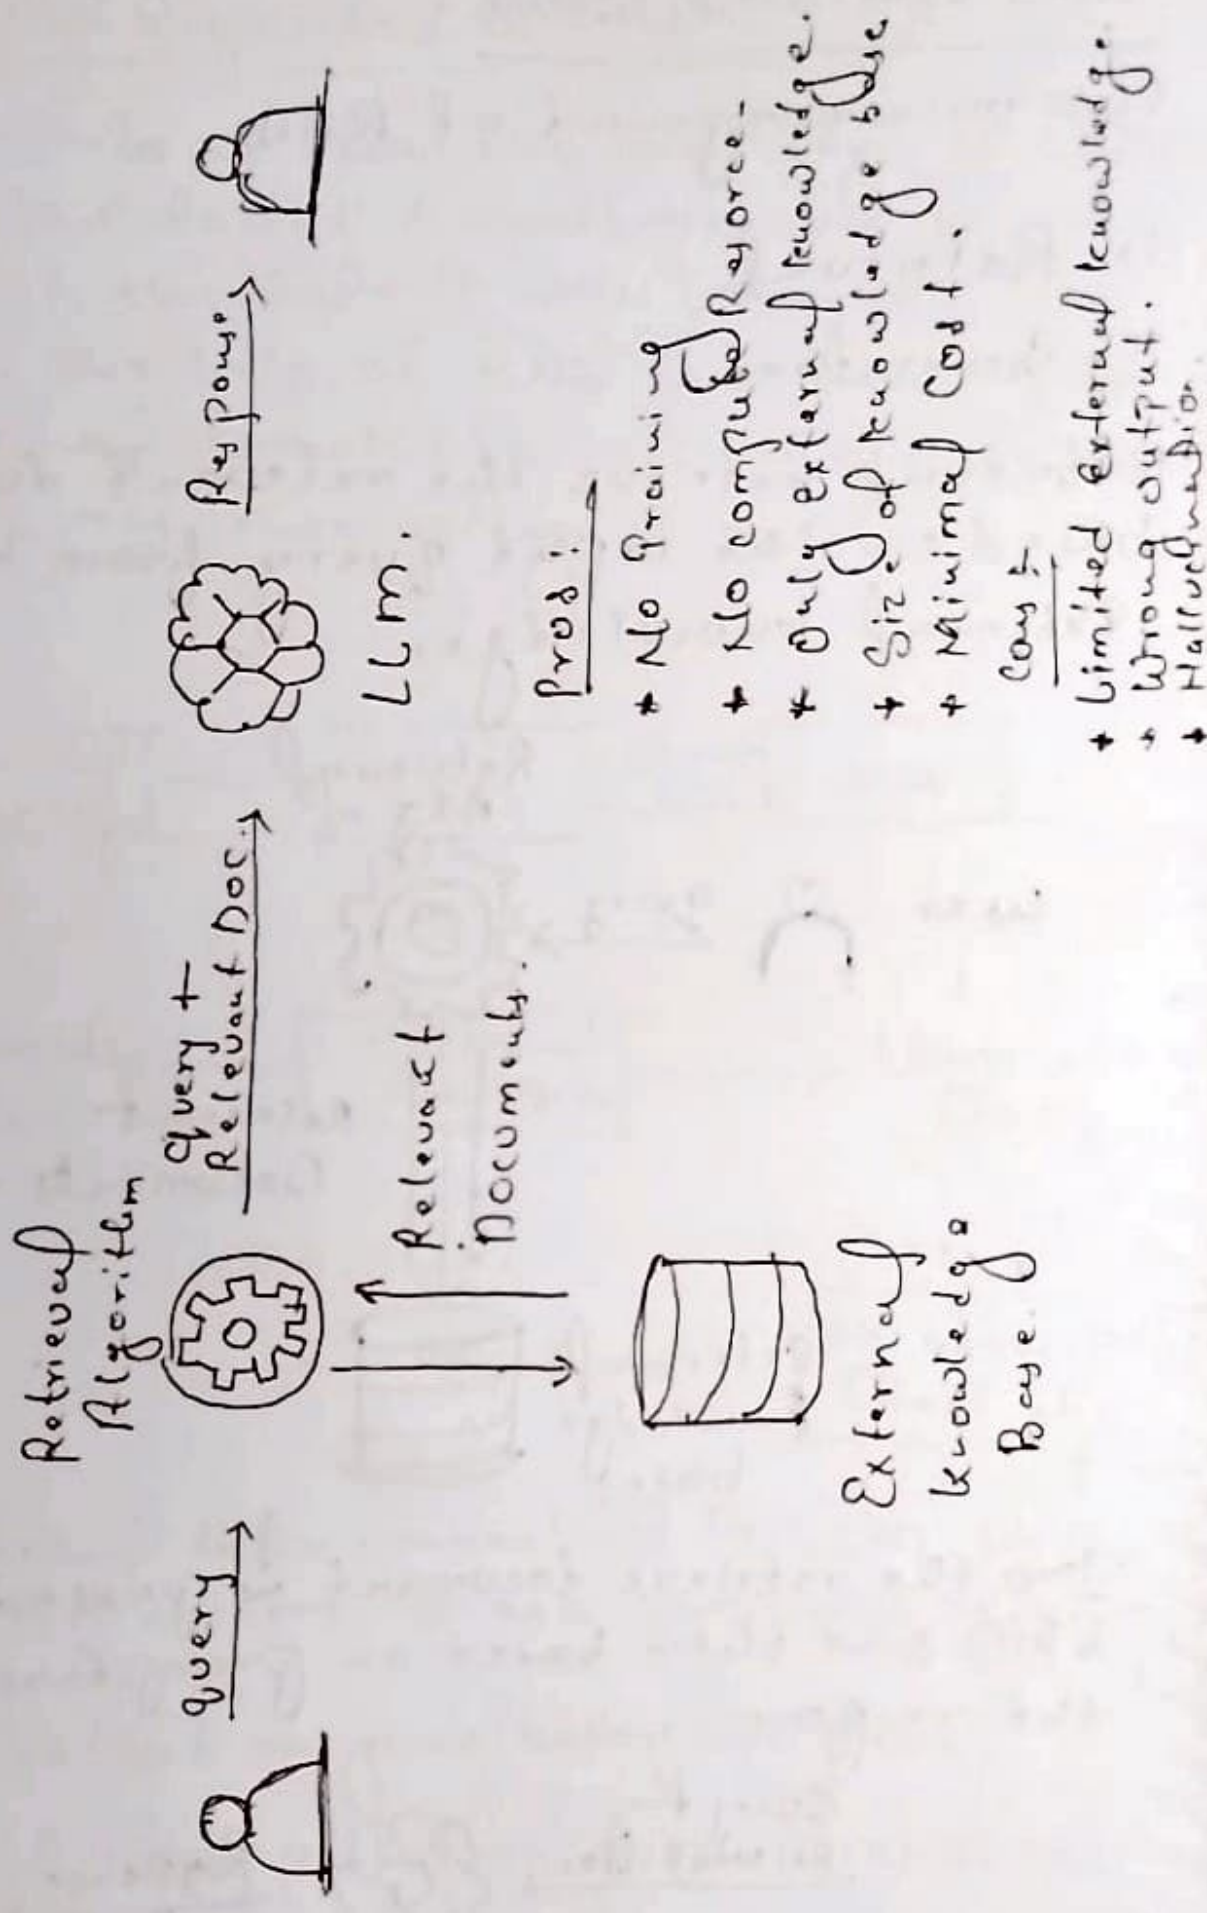 Retrieval
Algorithm
query
query +
Relevant Doc.
Response
LLM.
Relevant
Documents.
External
knowledge
Base.
Pros:
* No Training
* No compute Resorce.
* Only external knowledge.
* Size of knowledge base
* Minimal Cost.
Cons:
* Limited external knowledge.
* Wrong output.